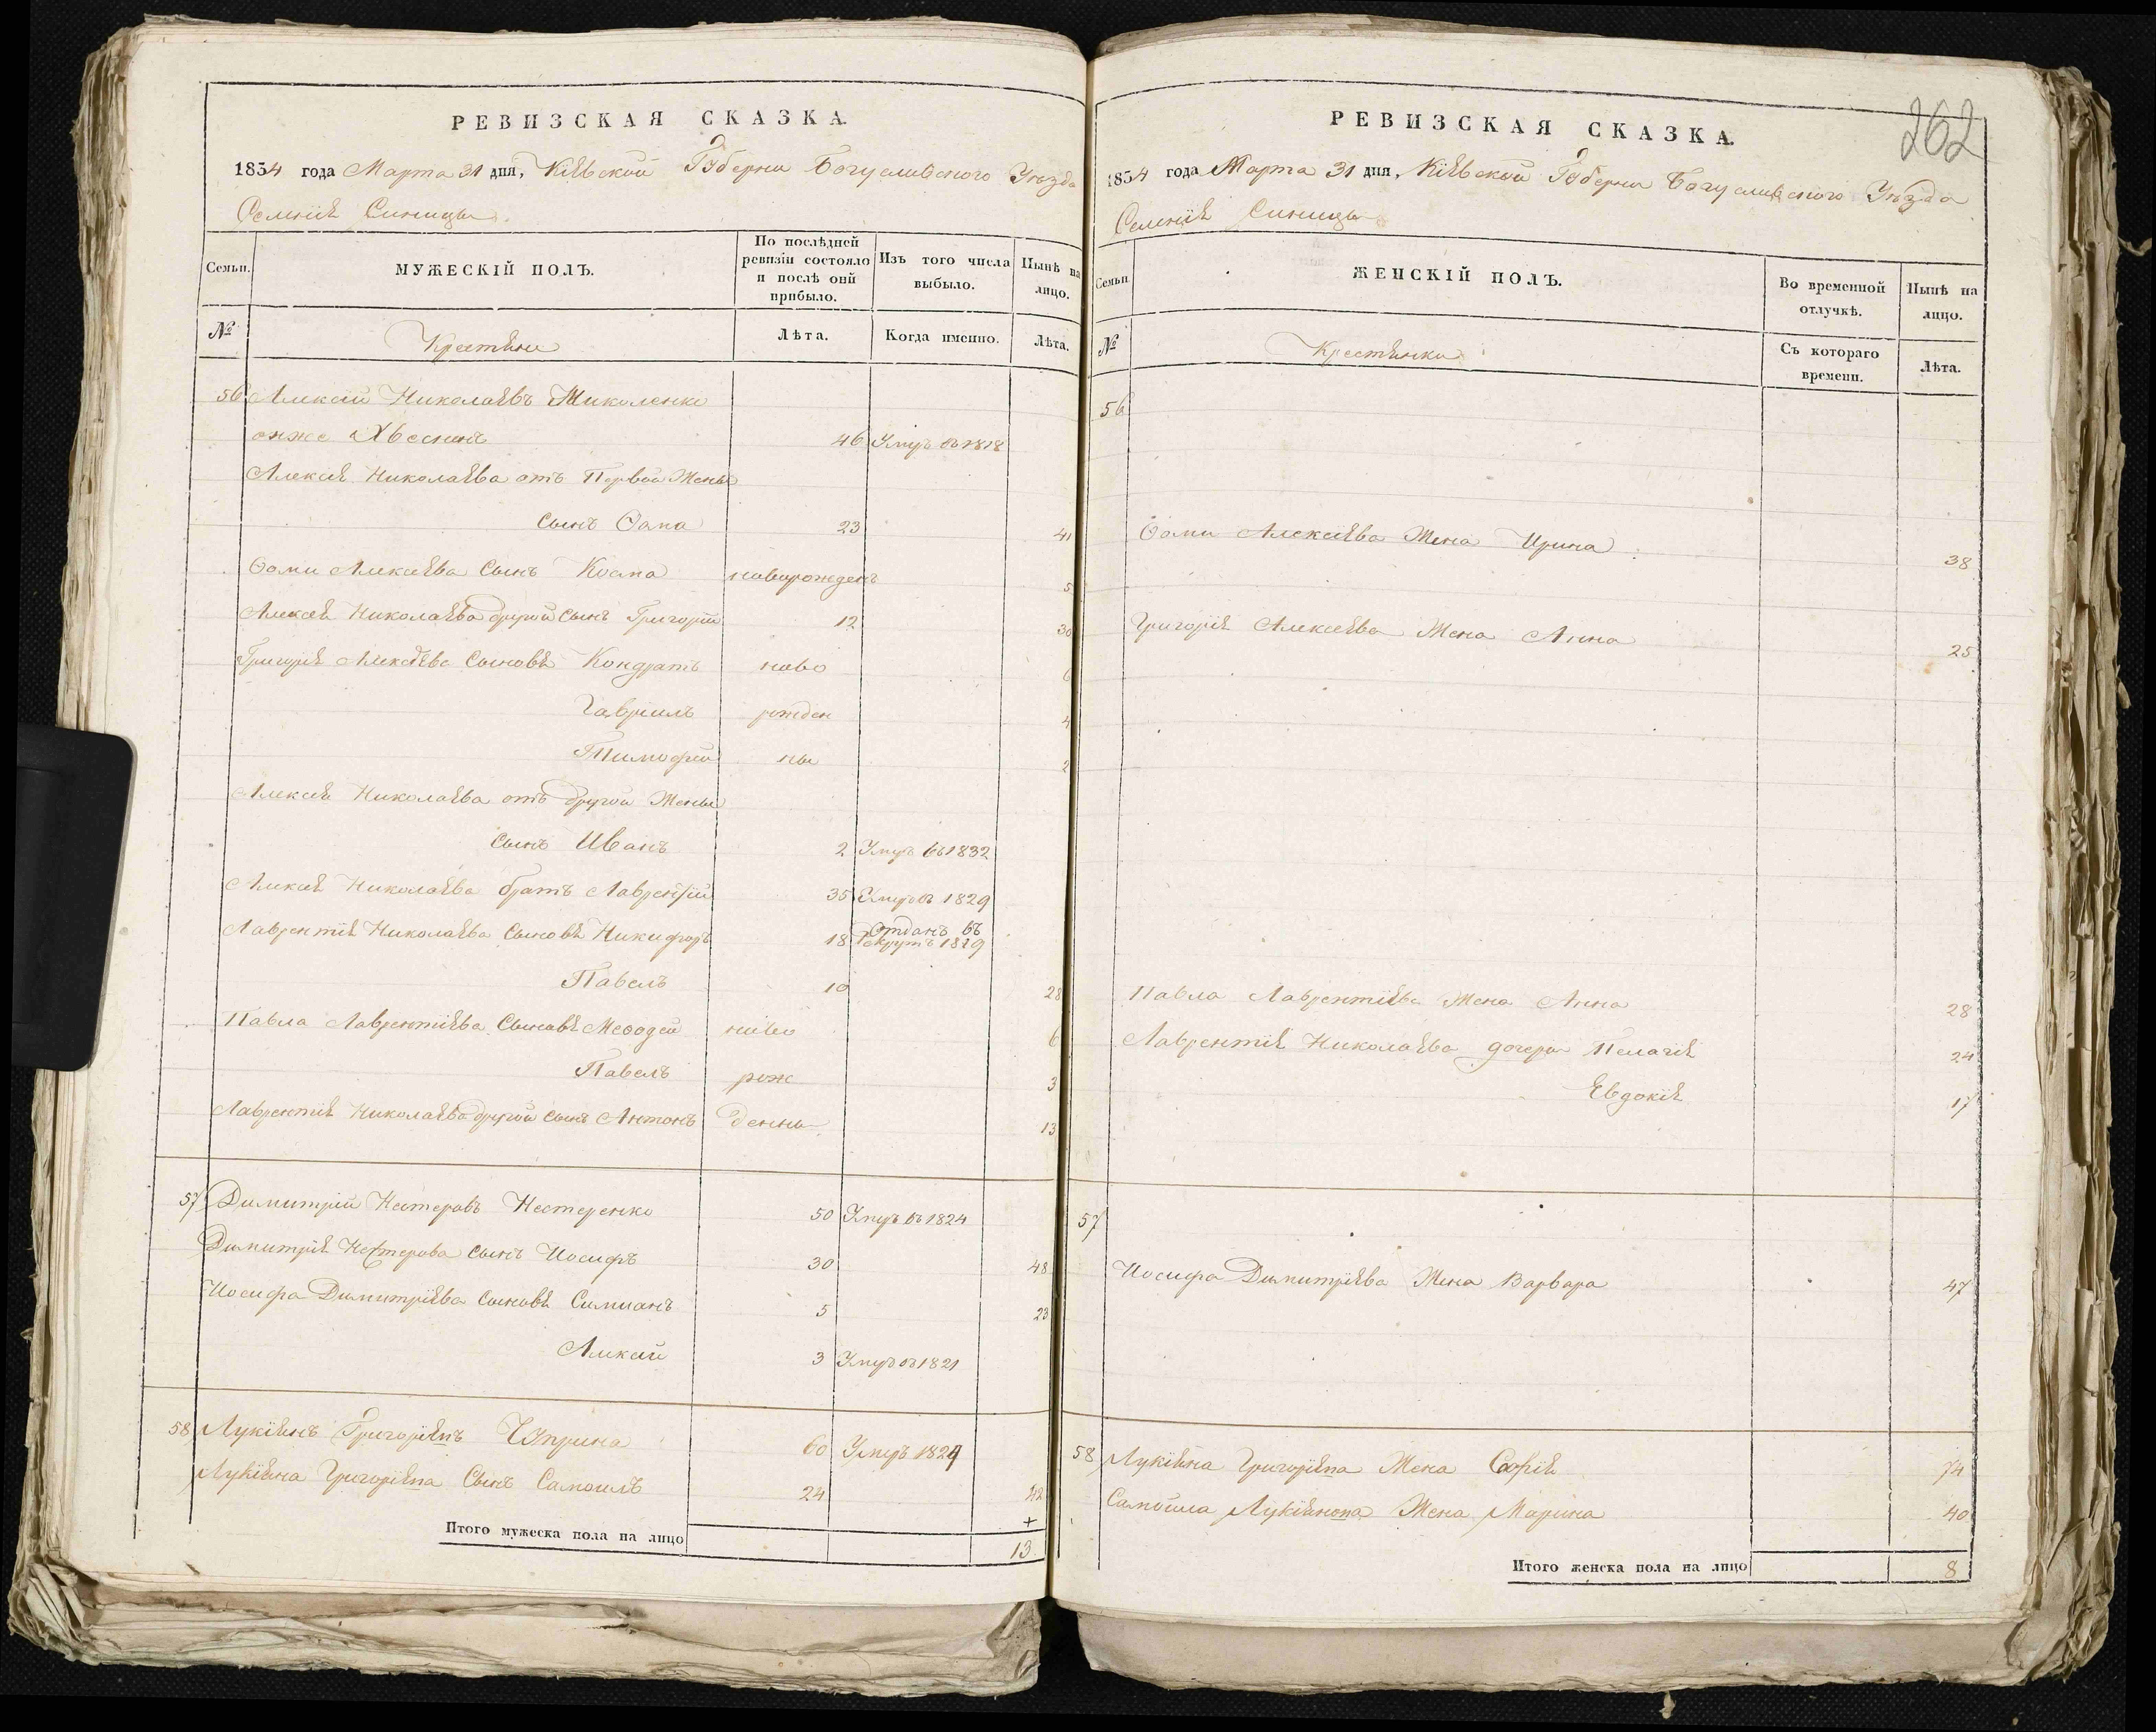 262
РЕВИЗСКАЯ СКАЗКА.
1834 года Марта 31 дня, Кіевской Губерніи Богуславского Уѣзда
Селенія Синицы
Семьи.
МУЖЕСКІЙ ПОЛЪ.
По послѣдней ревизіи состояло и послѣ оной прибыло.
Изъ того числа выбыло.
Нынѣ на лицо.
№
Крестьяне
Лѣта.
Когда именно.
Лѣта.
56 Алексей Николаевъ Миколенко
онже 46 Умеръ въ 1818
Алексея Николаева отъ Первой Жены
Сынъ Ѳома 23 41
Ѳомы Алексеева Сынъ Косма новорожденъ 5
Алексея Николаева другой Сынъ Григорій 12 30
Григорія Алексеева Сыновья Кондратъ ново 6
Гавріилъ рожден 4
Тимофей ны 2
Алексея Николаева отъ другой Жены
Сынъ Иванъ 2 Умеръ въ 1832
Алексея Николаева братъ Лаврентій 35 Умеръ въ 1829
Лаврентія Николаева Сыновья Никифоръ 18 Отданъ въ Рекруты 1829
Павелъ 10 28
Павла Лаврентіева Сыновья Меѳодей ново 6
Павелъ рож 3
Лаврентія Николаева другой Сынъ Антонъ денны 13
57 Димитрій Нестеровъ Нестеренко 50 Умеръ въ 1824
Димитрія Нестерова Сынъ Иосифъ 30 48
Иосифа Димитріева Сыновья Симианъ 5 23
Алексей 3 Умеръ въ 1821
58 Лукіянъ Григоріевъ Чуприна 60 Умеръ 1829
Лукіяна Григоріева Сынъ Самоилъ 24 42
+
Итого мужеска пола на лицо 13
РЕВИЗСКАЯ СКАЗКА.
1834 года Марта 31 дня, Кіевской Губерніи Богуславского Уѣзда
Селенія Синицы
Семьи
ЖЕНСКІЙ ПОЛЪ.
Во временной отлучкѣ.
Нынѣ на лицо.
№
Крестьянки
Съ котораго времени.
Лѣта.
56
Ѳомы Алексеева Жена Ирина 38
Григорія Алексеева Жена Анна 25
Павла Лаврентіева Жена Анна 28
Лаврентія Николаева дочери Пелагія 24
Евдокія 17
57
Иосифа Димитріева Жена Варвара 47
58 Лукіяна Григоріева Жена Софія 74
Самоила Лукіянова Жена Марина 40
Итого женска пола на лицо 8